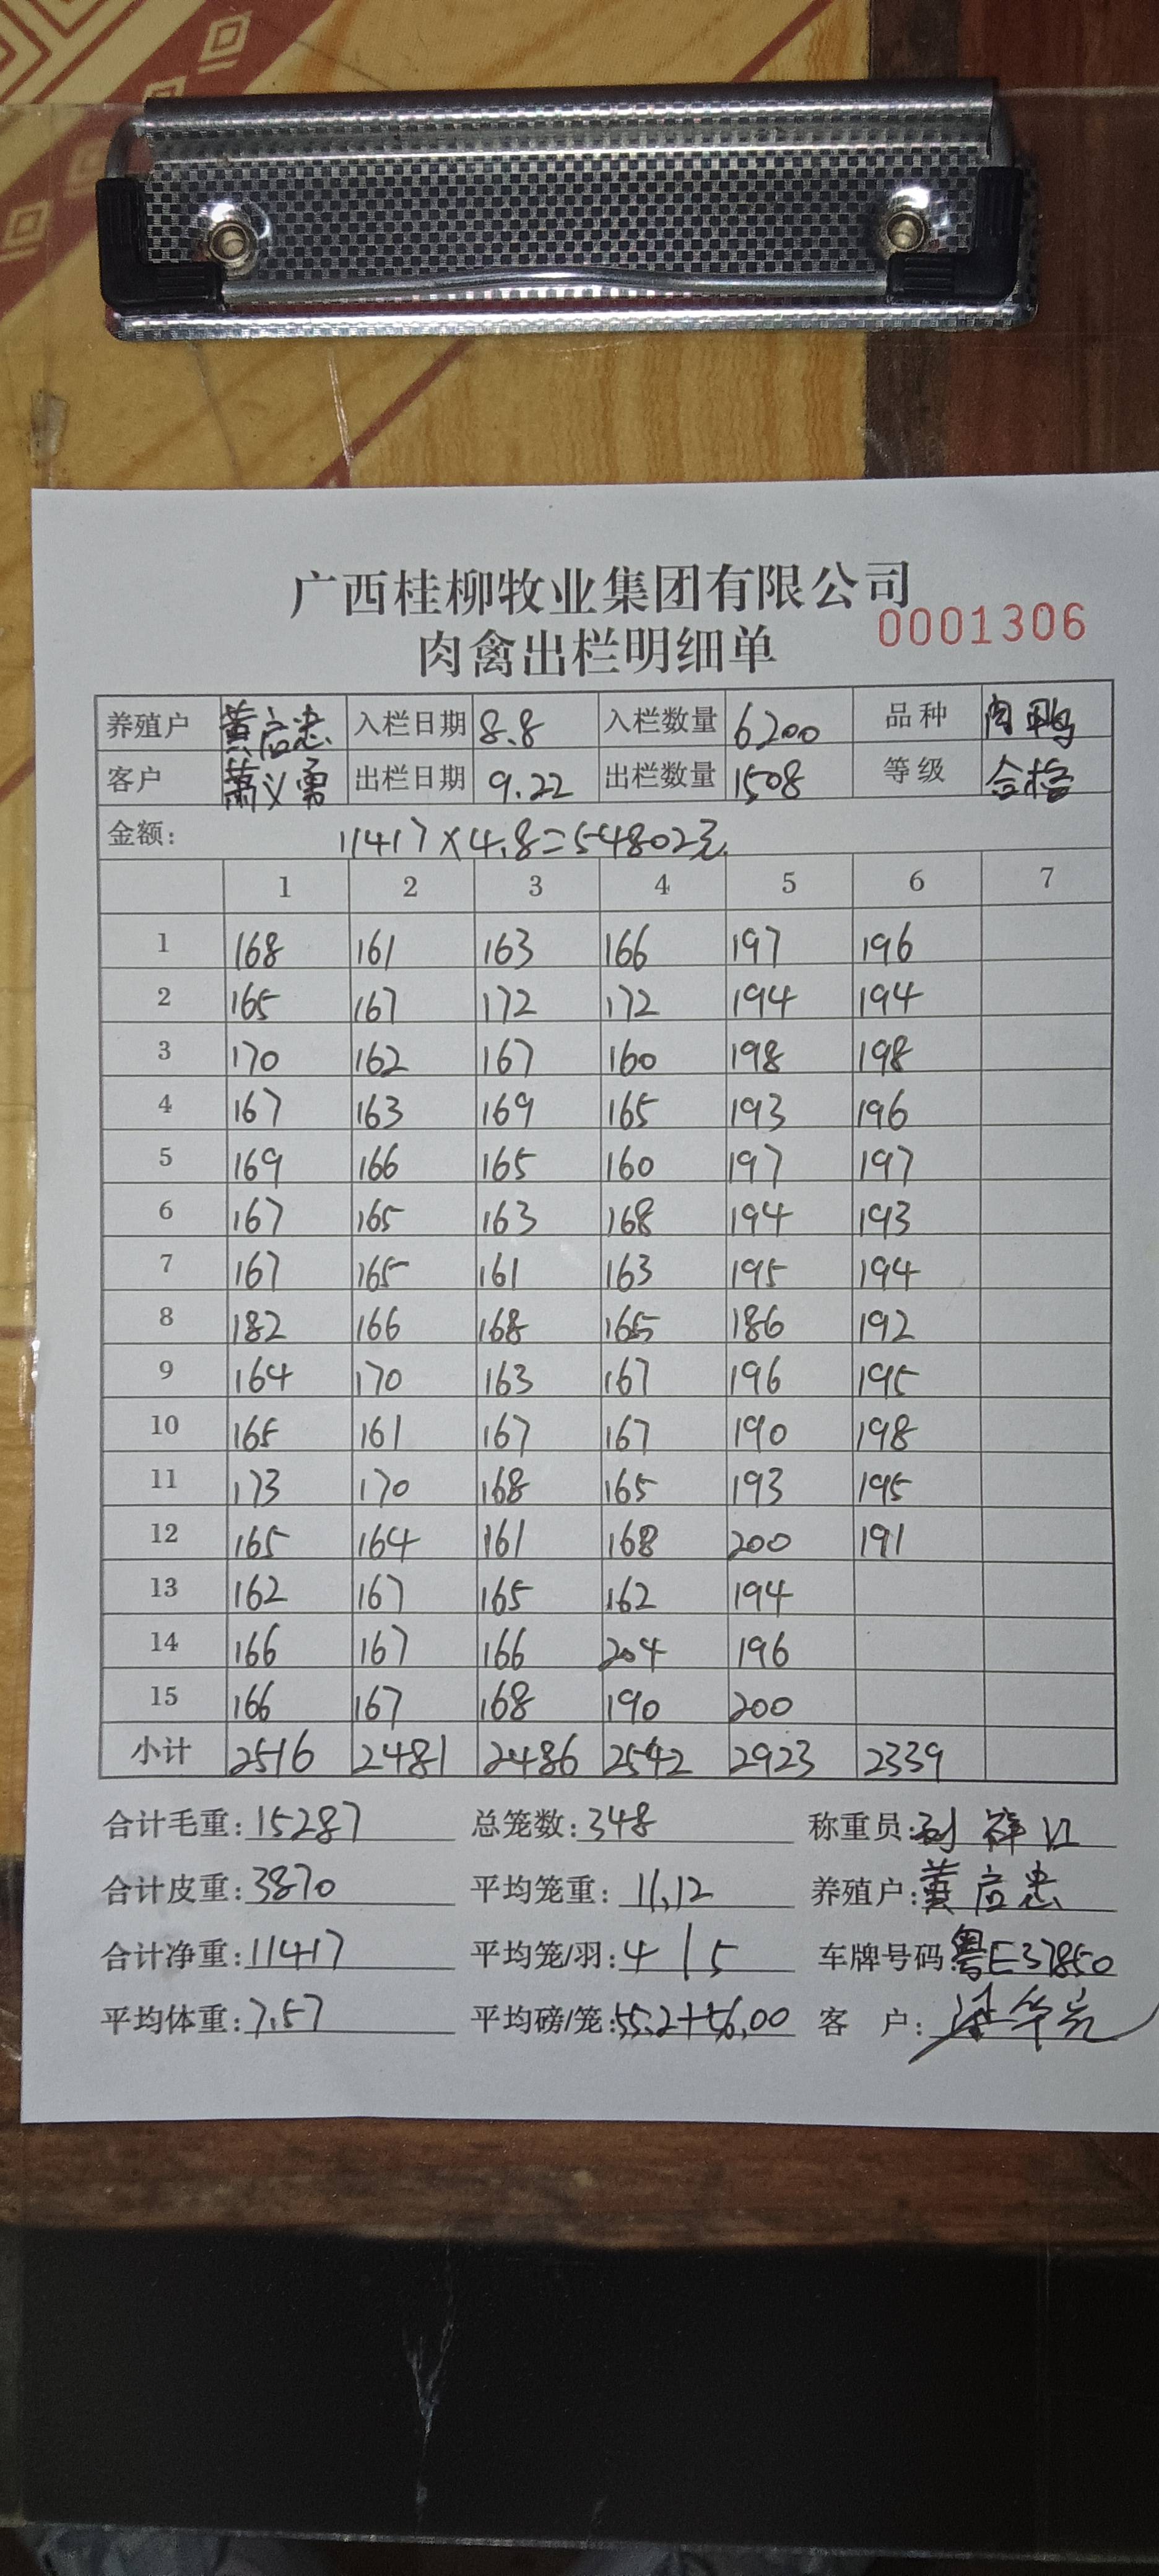 广西桂柳牧业集团有限公司
肉禽出栏明细单 0001306
养殖户 黄启忠 入栏日期 8.8 入栏数量 6200 品种 肉鸭
客户 萧义勇 出栏日期 9.22 出栏数量 1508 等级 合格
金额: 11417×4.8=54802元
1 2 3 4 5 6 7
1 168 161 163 166 197 196
2 165 167 172 172 194 194
3 170 162 167 160 198 198
4 167 163 169 165 193 196
5 169 166 165 160 197 197
6 167 165 163 168 194 193
7 167 165 161 163 195 194
8 182 166 168 165 186 192
9 164 170 163 167 196 195
10 165 161 167 167 190 198
11 173 170 168 165 193 195
12 165 164 161 168 200 191
13 162 167 165 162 194
14 166 167 166 204 196
15 166 167 168 190 200
小计 2516 2481 2486 2542 2923 2339
合计毛重: 15287 总笼数: 348 称重员:
合计皮重: 3870 平均笼重: 11.12 养殖户: 黄启忠
合计净重: 11417 平均笼/羽: 4 | 5 车牌号码 粤E37850
平均体重: 7.57 平均磅/笼: 55.2+56.00 客 户: